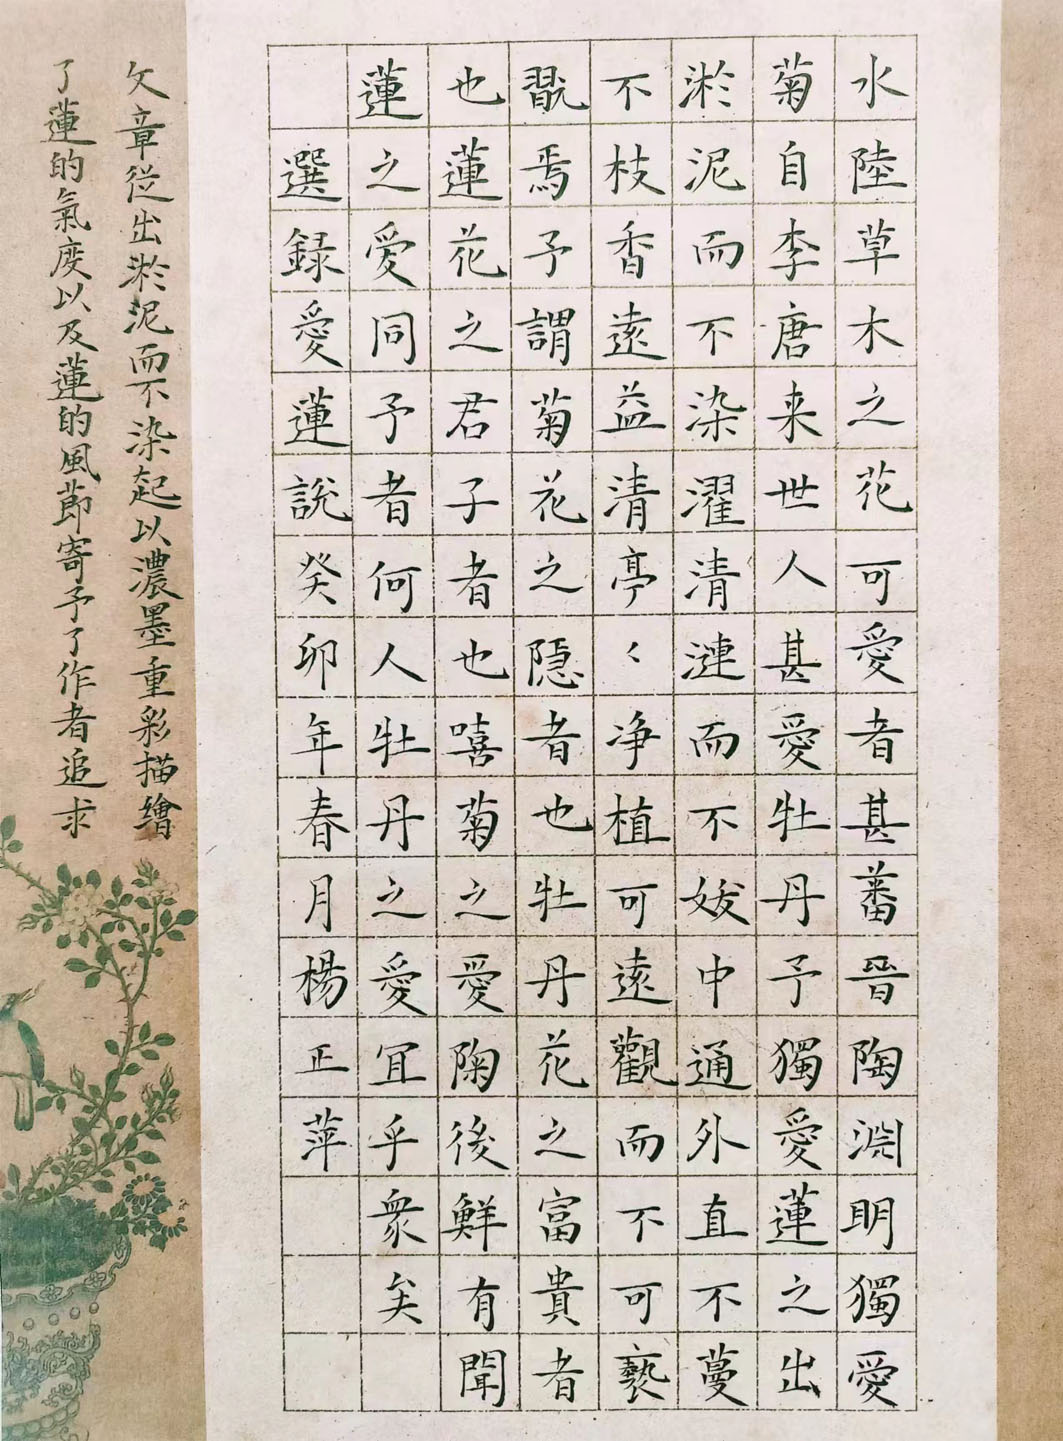 水陸草木之花可愛者甚蕃晉陶淵明獨愛
菊自李唐来世人甚愛牡丹予獨愛蓮之出
淤泥而不染濯清漣而不妭中通外直不蔓
不枝香遠益清亭〻净植可遠觀而不可褻
翫焉予謂菊花之隐者也牡丹花之富貴者
也蓮花之君子者也嘻菊之愛陶後鮮有聞
蓮之愛同予者何人牡丹之愛宜乎衆矣
選録愛蓮說癸卯年春月楊正萍
文章從出淤泥而不染起以濃墨重彩描繪
了蓮的氣度以及蓮的風節寄予了作者追求